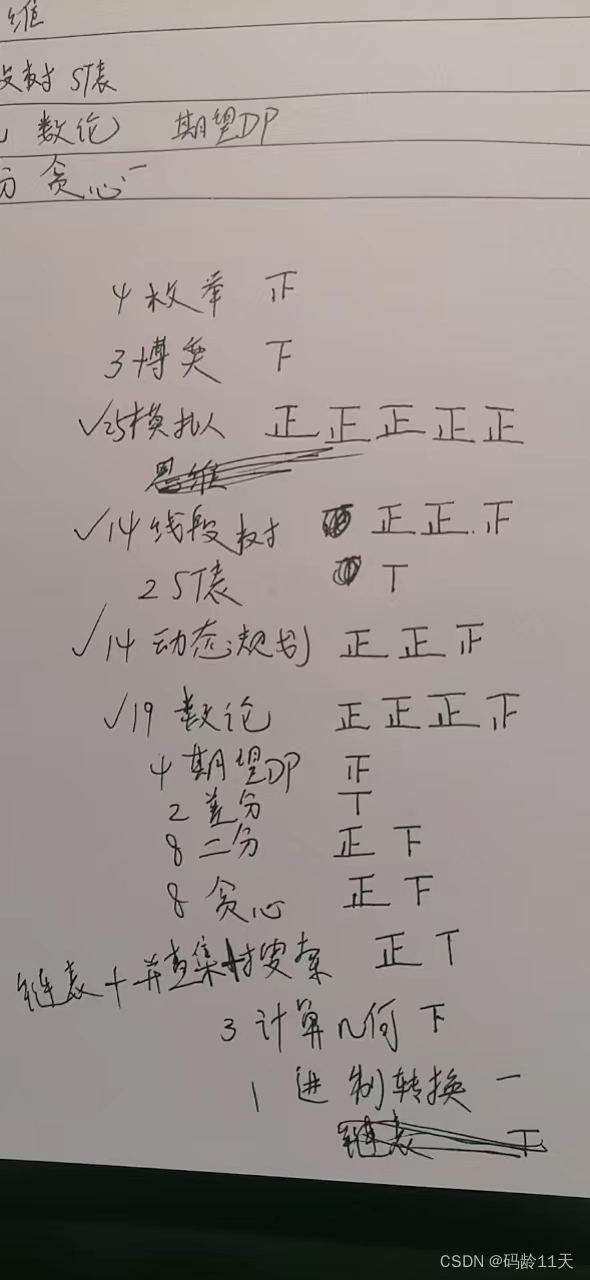 维
段树 ST表
数论 期望DP
分 贪心 一
4 枚举 正
3 博奕 下
√25 模拟 正 正 正 正 正
思维
√14 线段树 正 正 正
2 ST表 T
√14 动态规划 正 正 正
√19 数论 正 正 正 正
4 期望DP 正
2 差分 T
8 二分 正 下
8 贪心 正 下
链表+并查集+搜索 正 T
3 计算几何 下
1 进制转换 一
链表 下
CSDN @码龄11天